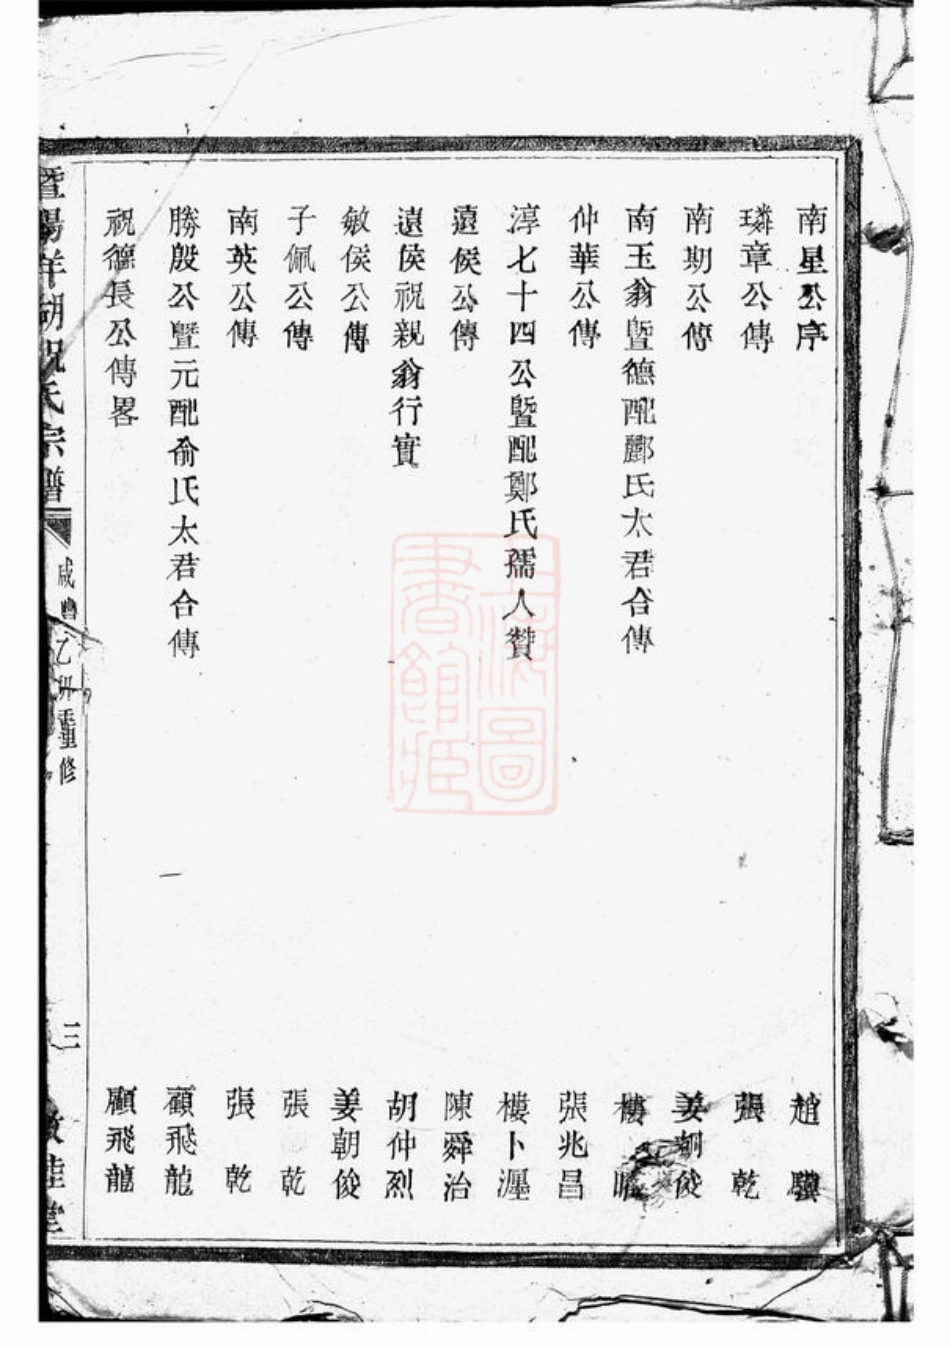 南星公序 趙驥
璘章公傳 張乾
南期公傳 姜朝俊
南玉翁暨德配酈氏太君合傳 樓
仲華公傳 張兆昌
淳七十四公暨配鄭氏孺人贊 樓卜瀍
遠侯公傳 陳舜治
遠侯祝親翁行實 胡仲烈
敏侯公傳 姜朝俊
子佩公傳 張乾
南英公傳 張乾
勝殷公暨元配俞氏太君合傳 顧飛龍
祝德長公傳畧 顧飛龍
暨陽祥湖祝氏宗譜 咸豐乙卯重修 三
上海圖書館藏